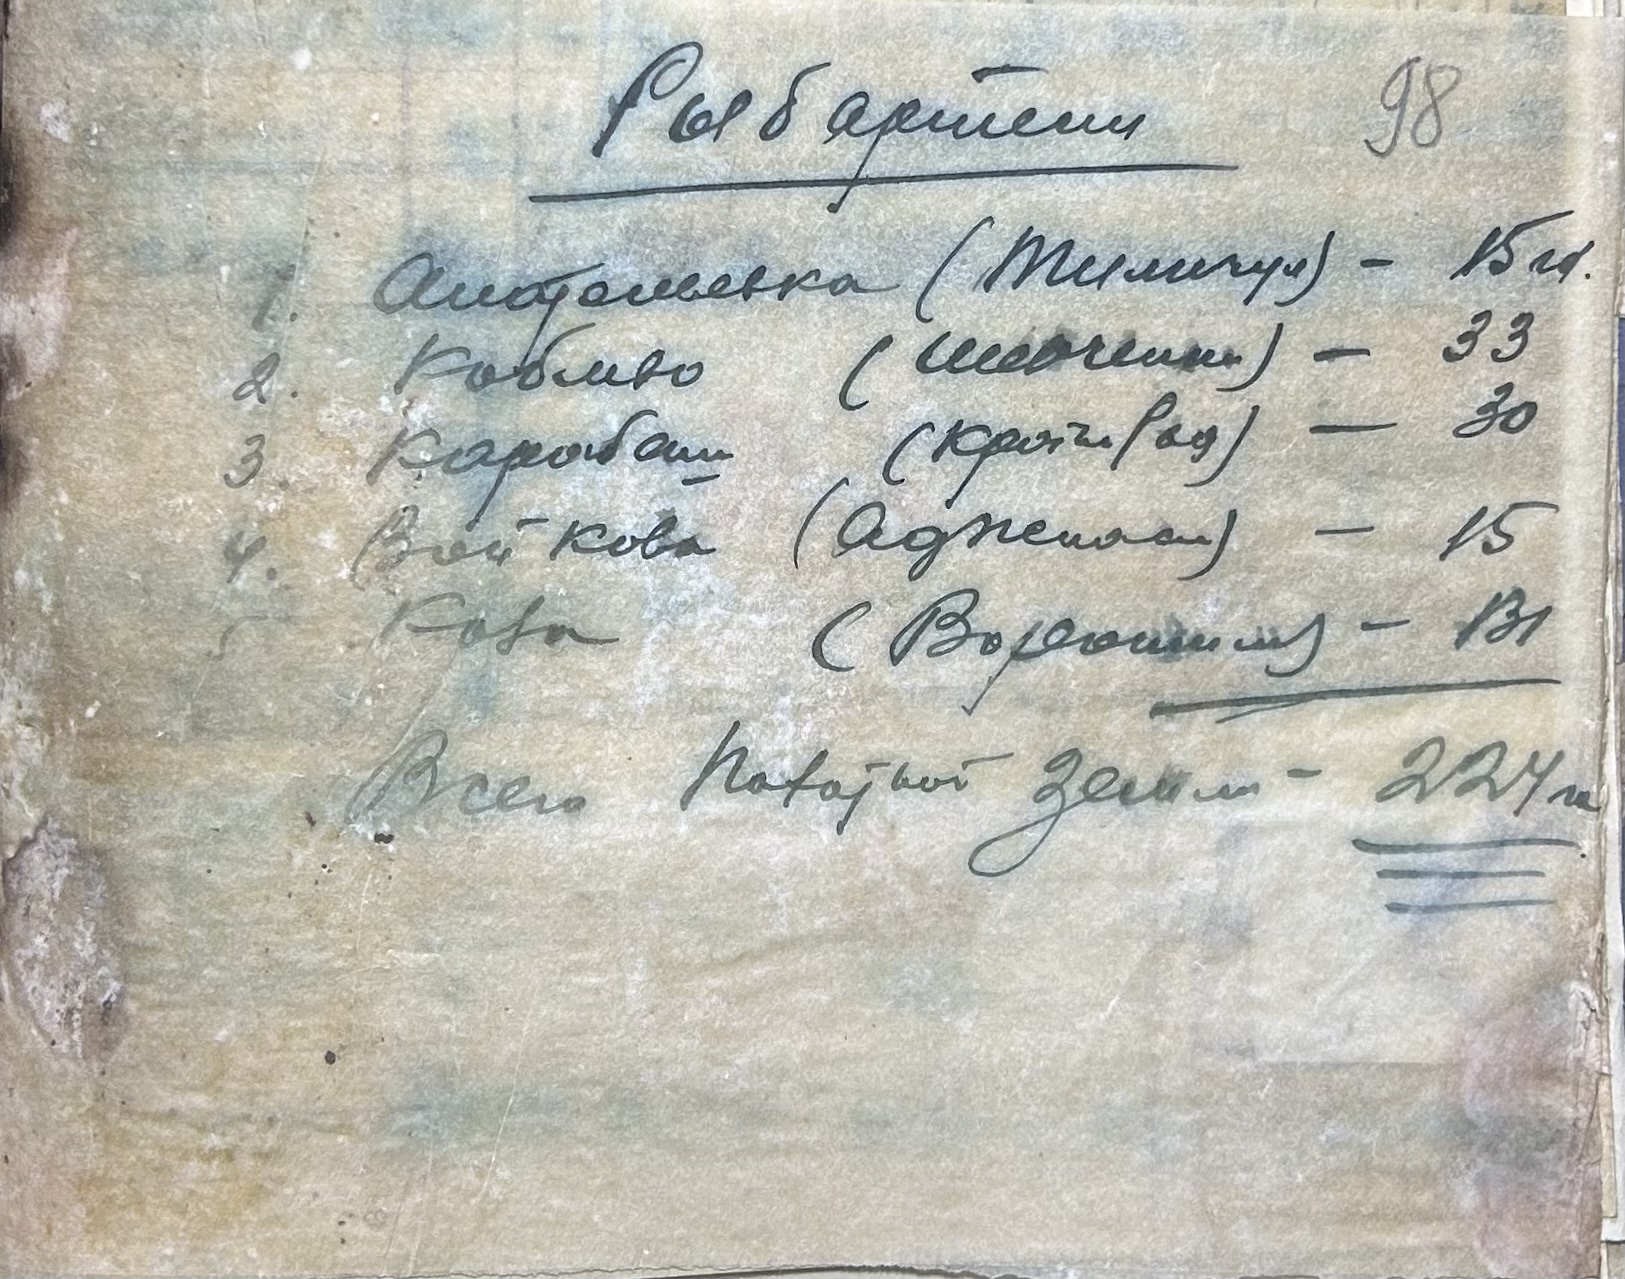 Рыбартели 98
1. Анатольевка (Тилигул) - 15 га.
2. Коблево (Шевченко) - 33
3. Карабаш (Кройт Рыб) - 30
4. Войкова (Аджиаск) - 15
5 Коза (Ворошилов) - 131
Всего Пахотной Земли - 224 га